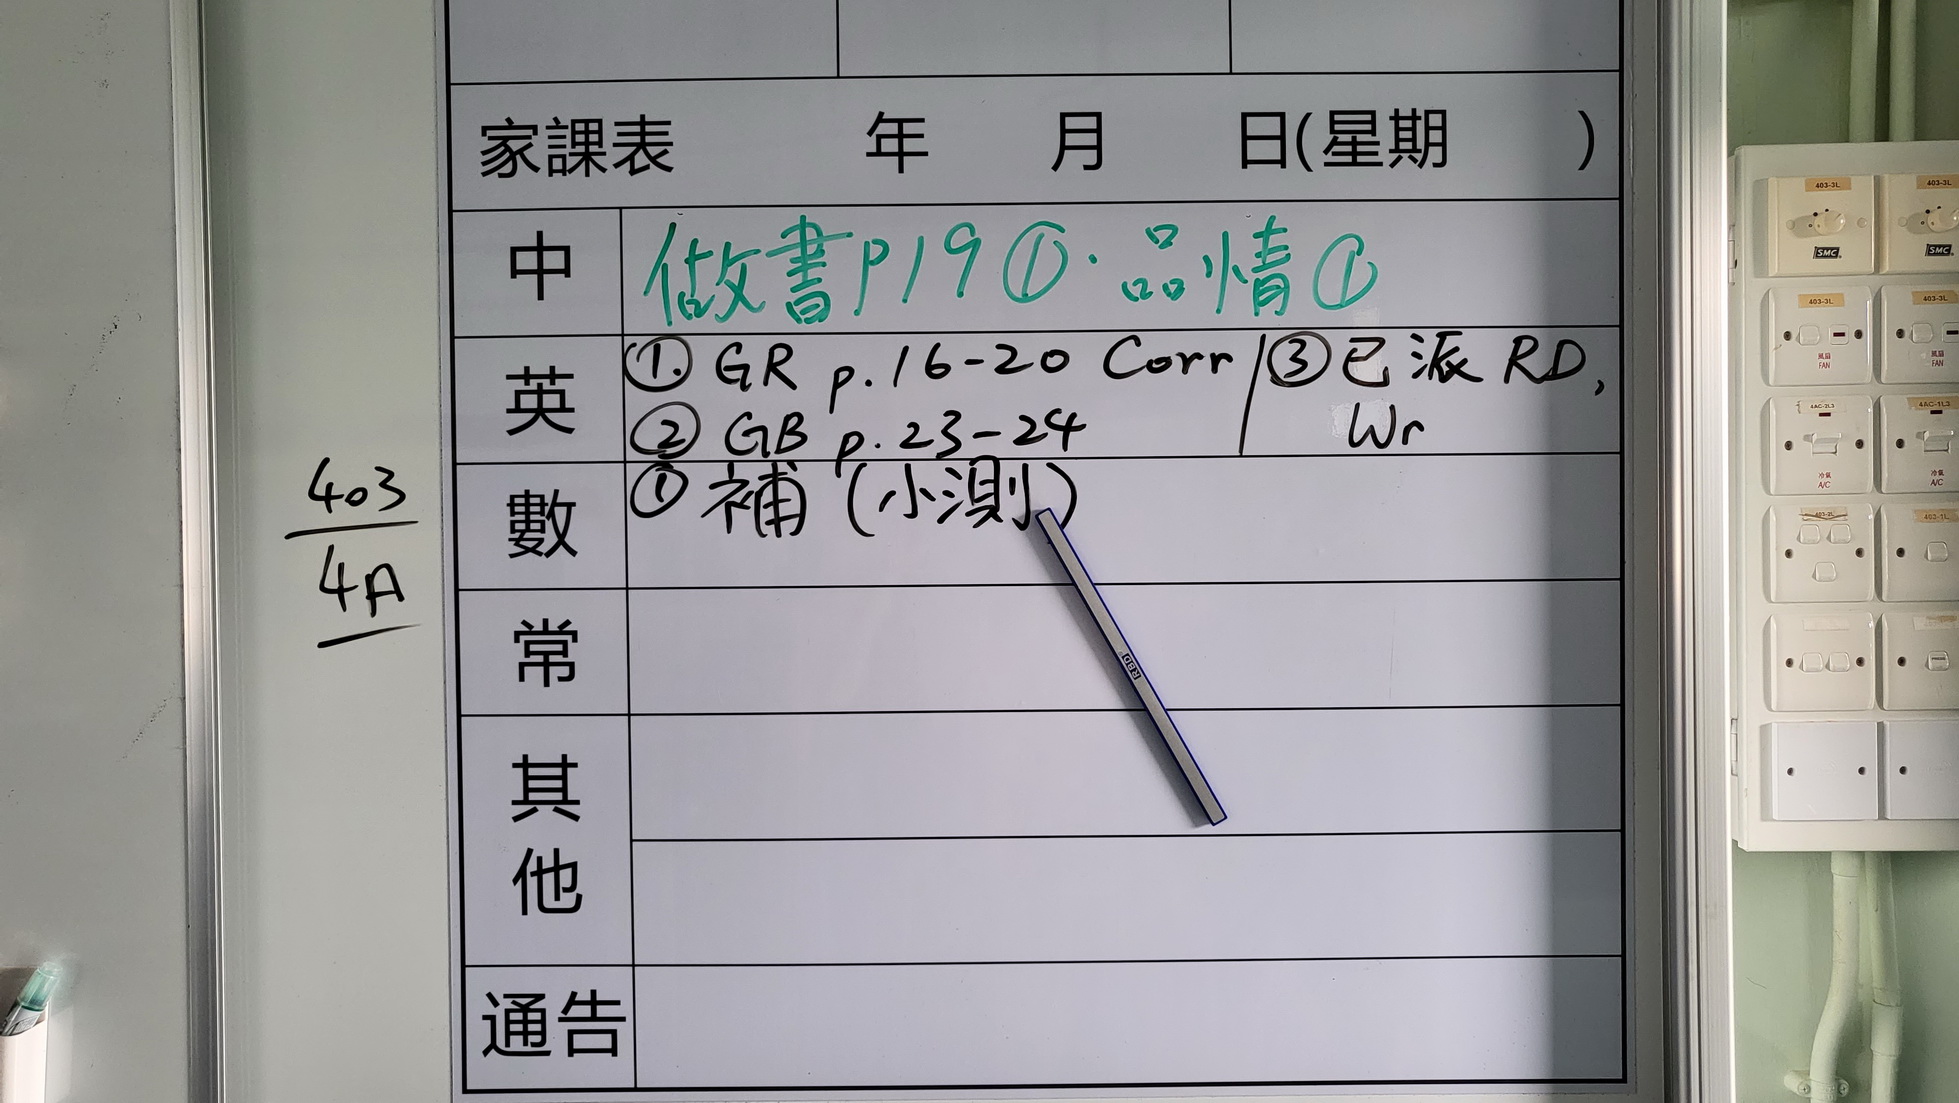 家課表 年 月 日(星期 )
中 做書p19①.品情①
英 ①. GR p.16-20 Corr / ③已派 RD,
② GB p.23-24 Wr
數 ① 補 (小測)
常
其他
通告
403
4A
RBD
403-3L
403-3L
SMC
SMC
403-3L
403-3L
風扇
FAN
風扇
FAN
4AC-2L3
4AC-1L3
冷氣
A/C
冷氣
A/C
403-2L
403-1L